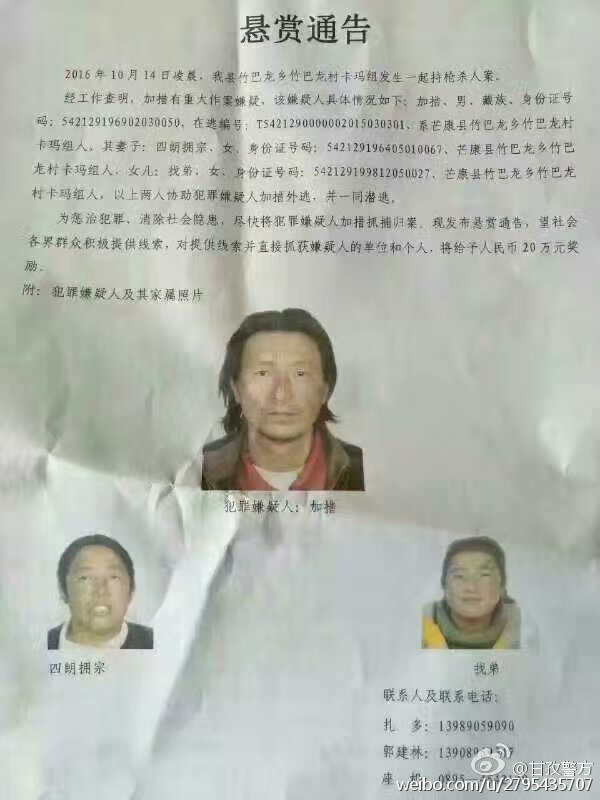 悬赏通告
2016年10月14日凌晨，我县竹巴龙乡竹巴龙村卡玛组发生一起持枪杀人案。
经工作查明，加措有重大作案嫌疑，该嫌疑人具体情况如下：加措、男、藏族、身份证号
码：542129196902030050、在逃编号：T5421290000002015030301、系芒康县竹巴龙乡竹巴龙村
卡玛组人。其妻子：四朗拥宗，女、身份证号码：542129196405010067、芒康县竹巴龙乡竹巴
龙村卡玛组人，女儿：找弟，女、身份证号码：542129199812050027、芒康县竹巴龙乡竹巴龙
村卡玛组人，以上两人协助犯罪嫌疑人加措外逃，并一同潜逃。
为惩治犯罪、消除社会隐患，尽快将犯罪嫌疑人加措抓捕归案。现发布悬赏通告，望社会
各界群众积极提供线索，对提供线索并直接抓获嫌疑人的单位和个人，将给予人民币20万元奖
励。
附：犯罪嫌疑人及其家属照片
犯罪嫌疑人：加措
四朗拥宗
找弟
联系人及联系电话：
扎 多：13989059090
郭建林：
座 机：0895
@甘孜警方
weibo.com/u/2795435707